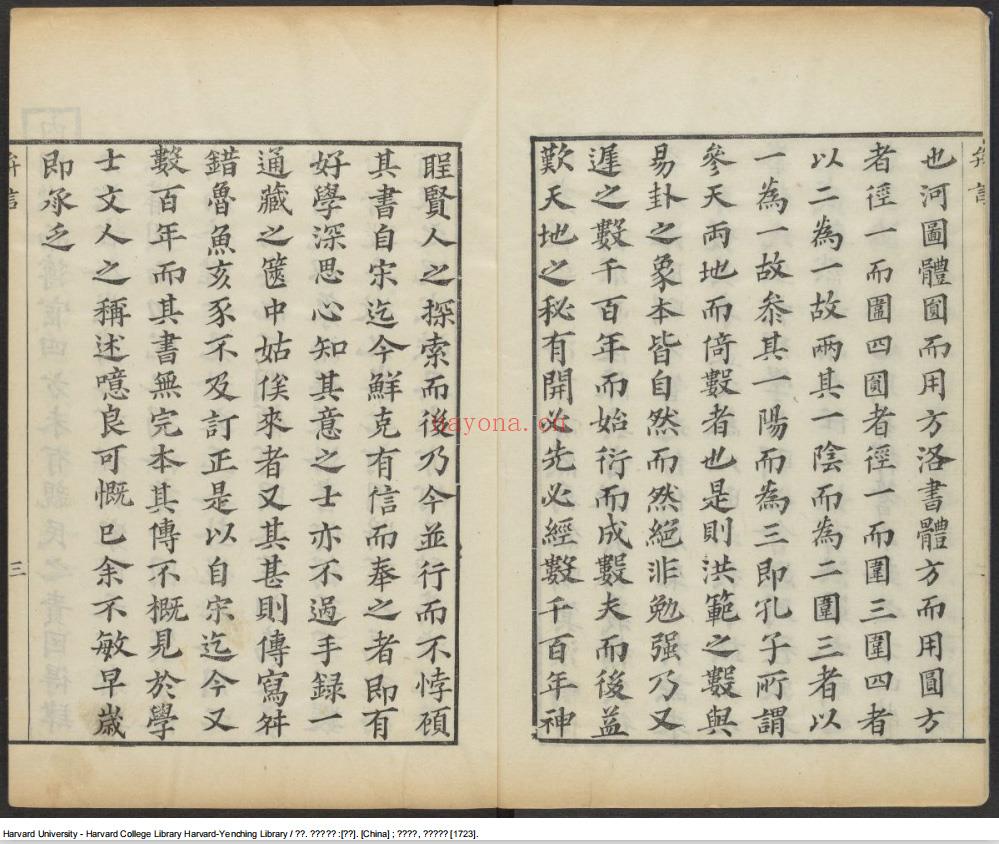 弁言
也河圖體圓而用方洛書體方而用圓方
者徑一而圍四圓者徑一而圍三圍四者
以二為一故兩其一陰而為二圍三者以
一為一故叅其一陽而為三即孔子所謂
參天兩地而倚數者也是則洪範之數與
易卦之象本皆自然而然絕非勉强乃又
遲之數千百年而始衍而成數夫而後益
歎天地之秘有開必先必經數千百年神
聖賢人之探索而後乃今並行而不悖碩
其書自宋迄今鮮克有信而奉之者即有
好學深思心知其意之士亦不過手録一
通藏之篋中姑俟來者又其甚則傳寫舛
錯魯魚亥豕不及訂正是以自宋迄今又
數百年而其書無完本其傳不概見於學
士文人之稱述噫良可慨已余不敏早歲
即承乏
弁言
三
nayona.cn
Harvard University - Harvard College Library Harvard-Yenching Library / ??. ????? :[??]. [China] ; ????, ????? [1723].